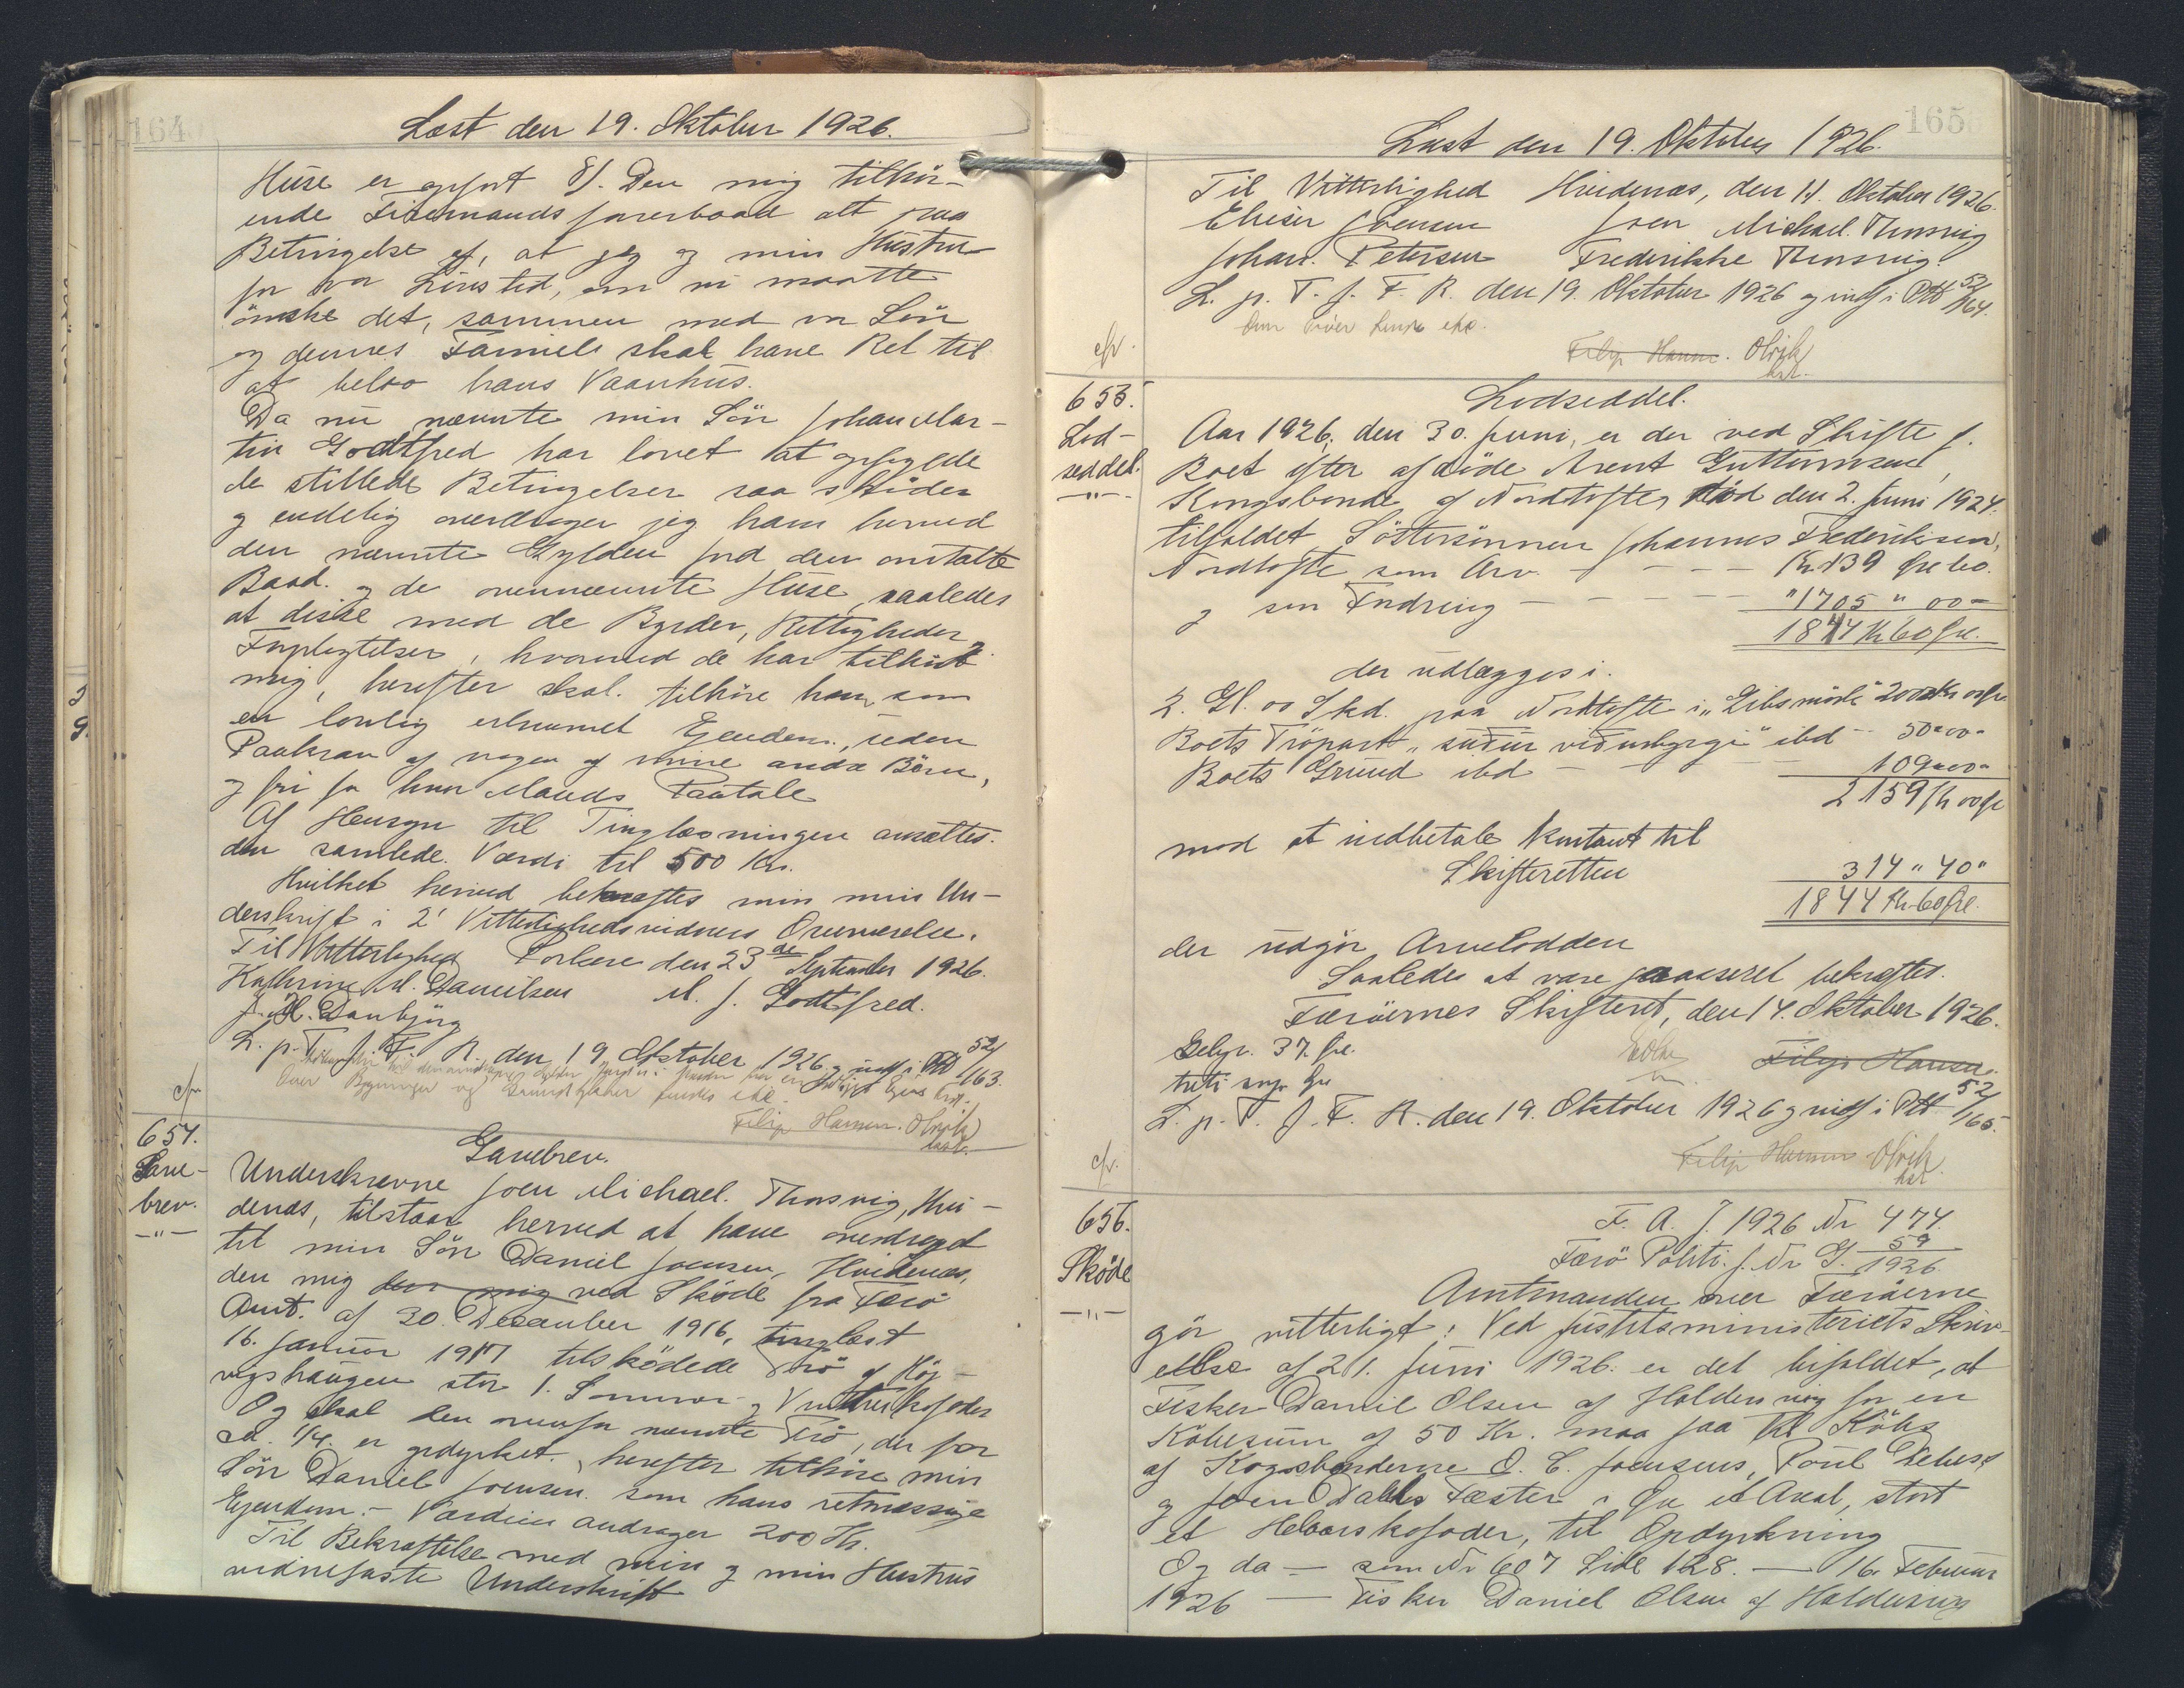 164
Læst den 19. Oktober 1926.
Huse er opført 8/. Den mig tilhör-
ende Firemandsfarerbaad alt paa
Betingelse af, at jeg og min Hustru
for vor Livstid, om vi maatte
önske det, sammen med vor Sön
og dennes Familie skal have Ret til
at bebo hans Vaanhus.
Da nu nævnte min Sön Johan Mar-
tin Godtfred har lovet at opfylde
de stillede Betingelser saa sköder
og endelig overdrager jeg ham herved
den nævnte Gylden Jord den omtalte
Baad. og de ovennævnte Huse, saaledes
at disse med de Byrder, Rettigheder og
Forpligtelser, hvormed de har tilhört
mig, herefter skal. tilhöre ham som
en lovlig erhvervet Ejendom, uden
Paakrav af nogen af mine andre Börn,
og fri for hver Mands Paatale
Af Hensyn til Tinglæsningen ansættes.
den samlede. Værdi til 500 Kr.
Hvilket herved bekræftes min min Un-
derskrift i 2' Vitterlighedsvidners Overværelse.
Til Vitterlighed Porkere den 23 de September 1926.
Kathrine M. Danielsen M. J. Godtfred.
J. H. Danbjörg
L. p. T. f. F. R. den 19 Oktober 1926 og indf i Ptt 52/163.
Over Bygninger og findes ikke.
Filip Hansen. Olrik
kst.
cfr
654.
Gave-
brev.
-"-
Gavebrev.
Underskrevne Joen Michael. Thorsvig, Hvi-
denæs, tilstaar herved at have overdraget
til min Sön Daniel Joensen, Hvidenæs,
den mig den mig ved Sköde fra Færö
Amt. af 30. December 1916, tinglæst
16. Januar 1917 tilsködede Trö af Höj-
vigshaugen stor 1. Sommer- og Vinterkofoder
Og skal den ovenfor nævnte Trö, der for
ca. 1/4. er opdyrket. herefter tilhöre min
Sön Daniel Joensen. som hans retmæssige
Ejendom.- Værdien andrager 200 Kr.
Til Bekræftelse med min og min Hustrus
vidnefaste Underskrift
165
Læst den 19. Oktober 1926.
Til Vitterlighed Hvidenæs, den 11. Oktober 1926.
Elieser Joensen Joen Michael. Thorsvig
Johan. Petersen Frederikke Thorsvig.
L. p. T. f. F. R. den 19. Oktober 1926 og indf i Ptt 52/164.
findes ikke.
cfr.
Filip Hansen. Olrik
kst.
655.
Lod-
seddel.
-"-
Lodseddel.
Aar 1926, den 30. Juni, er der ved Skifte f.
Boet efter afdöde Arent Guttormsen,
Kongsbonde af Nordtofte, död den 2. Juni 1924.
tilfaldet Söstersönnen Johannes Frederiksen,
Nordtofte som Arv - - - - Kr. 139 Öre 60.
og som Fordring - - - - - "1705 " 00-
1844 Kr 60 Öre.
der udlægges i.
2. Gl. 00 Skd. paa Nordtofte i „Libsmörk" 2000 Kr 00 Öre
Boets Tröpart „sudur vidurbyrgi" ibd - 50 " 00 -
Boets Grund ibd - - - 109 " 00 -
2159 Kr 00 Ör
mod at indbetale kontant til
Skifteretten 314 " 40 "
1844 Kr 60 Öre.
der udgör Arvelodden
Saaledes at være passeret bekræftes.
Færöernes Skifteret, den 14. Oktober 1926.
Gebyr. 37. Öre. Filip Hansen.
treti syv Öre
L. p. T. f. F. R. den 19. Oktober 1926 og indf i Ptt 52/165.
Filip Hansen Olrik
kst
cfr.
656.
Sköde
-"-
F. A. J. 1926 Nr 474.
Færö Politi. J. Nr G. 59/1926
Amtmanden over Færöerne
gör vitterligt: Ved Justitsministeriets Skriv-
else af 21. Juni 1926. er det bifaldet, at
Fisker Daniel Olsen af Haldersvig for en
Köbesum af 50 Kr. maa faa til Köbs
af Kogsbönderne O. C. Joensens, Poul Debess
og Joen Dahls Fæster i Gu et Areal, stort
et Helaarskofoder, til Opdyrkning
Og da - som Nr 607 Side 128. - 16. Februar
1926 - Fisker Daniel Olsen af Haldersvig